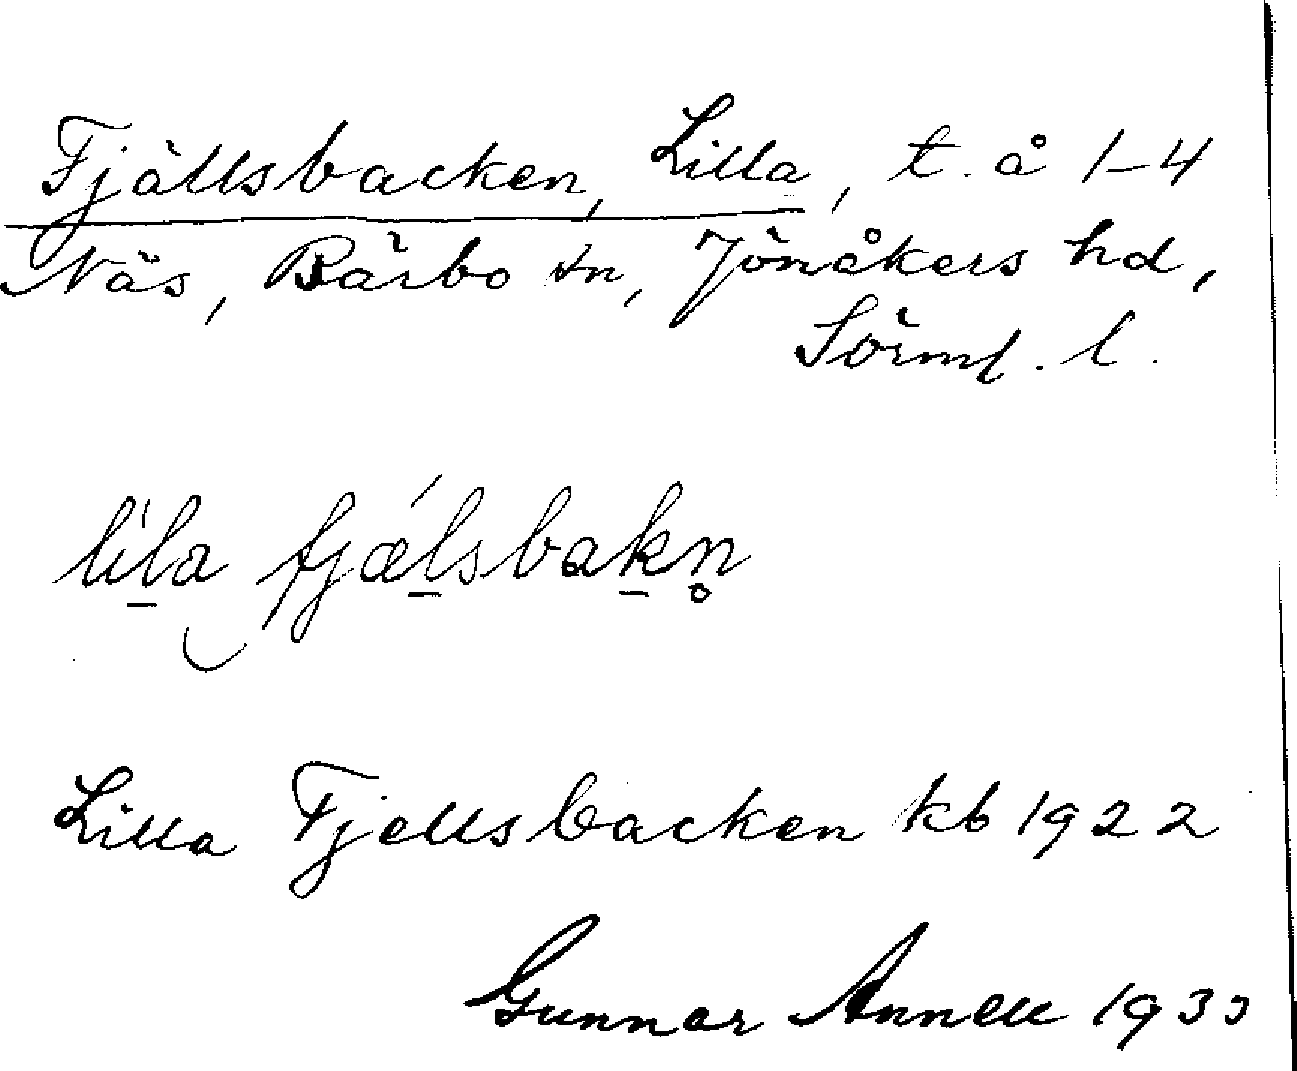 Fjällsbacken, Lilla, t. å 1-4
Näs, Bärbo sn, Jönåkers hd,
Sörml. l.
lìla fjǽlsbakn̥
Lilla Fjellsbacken kb 1922
Gunnar Annell 1933